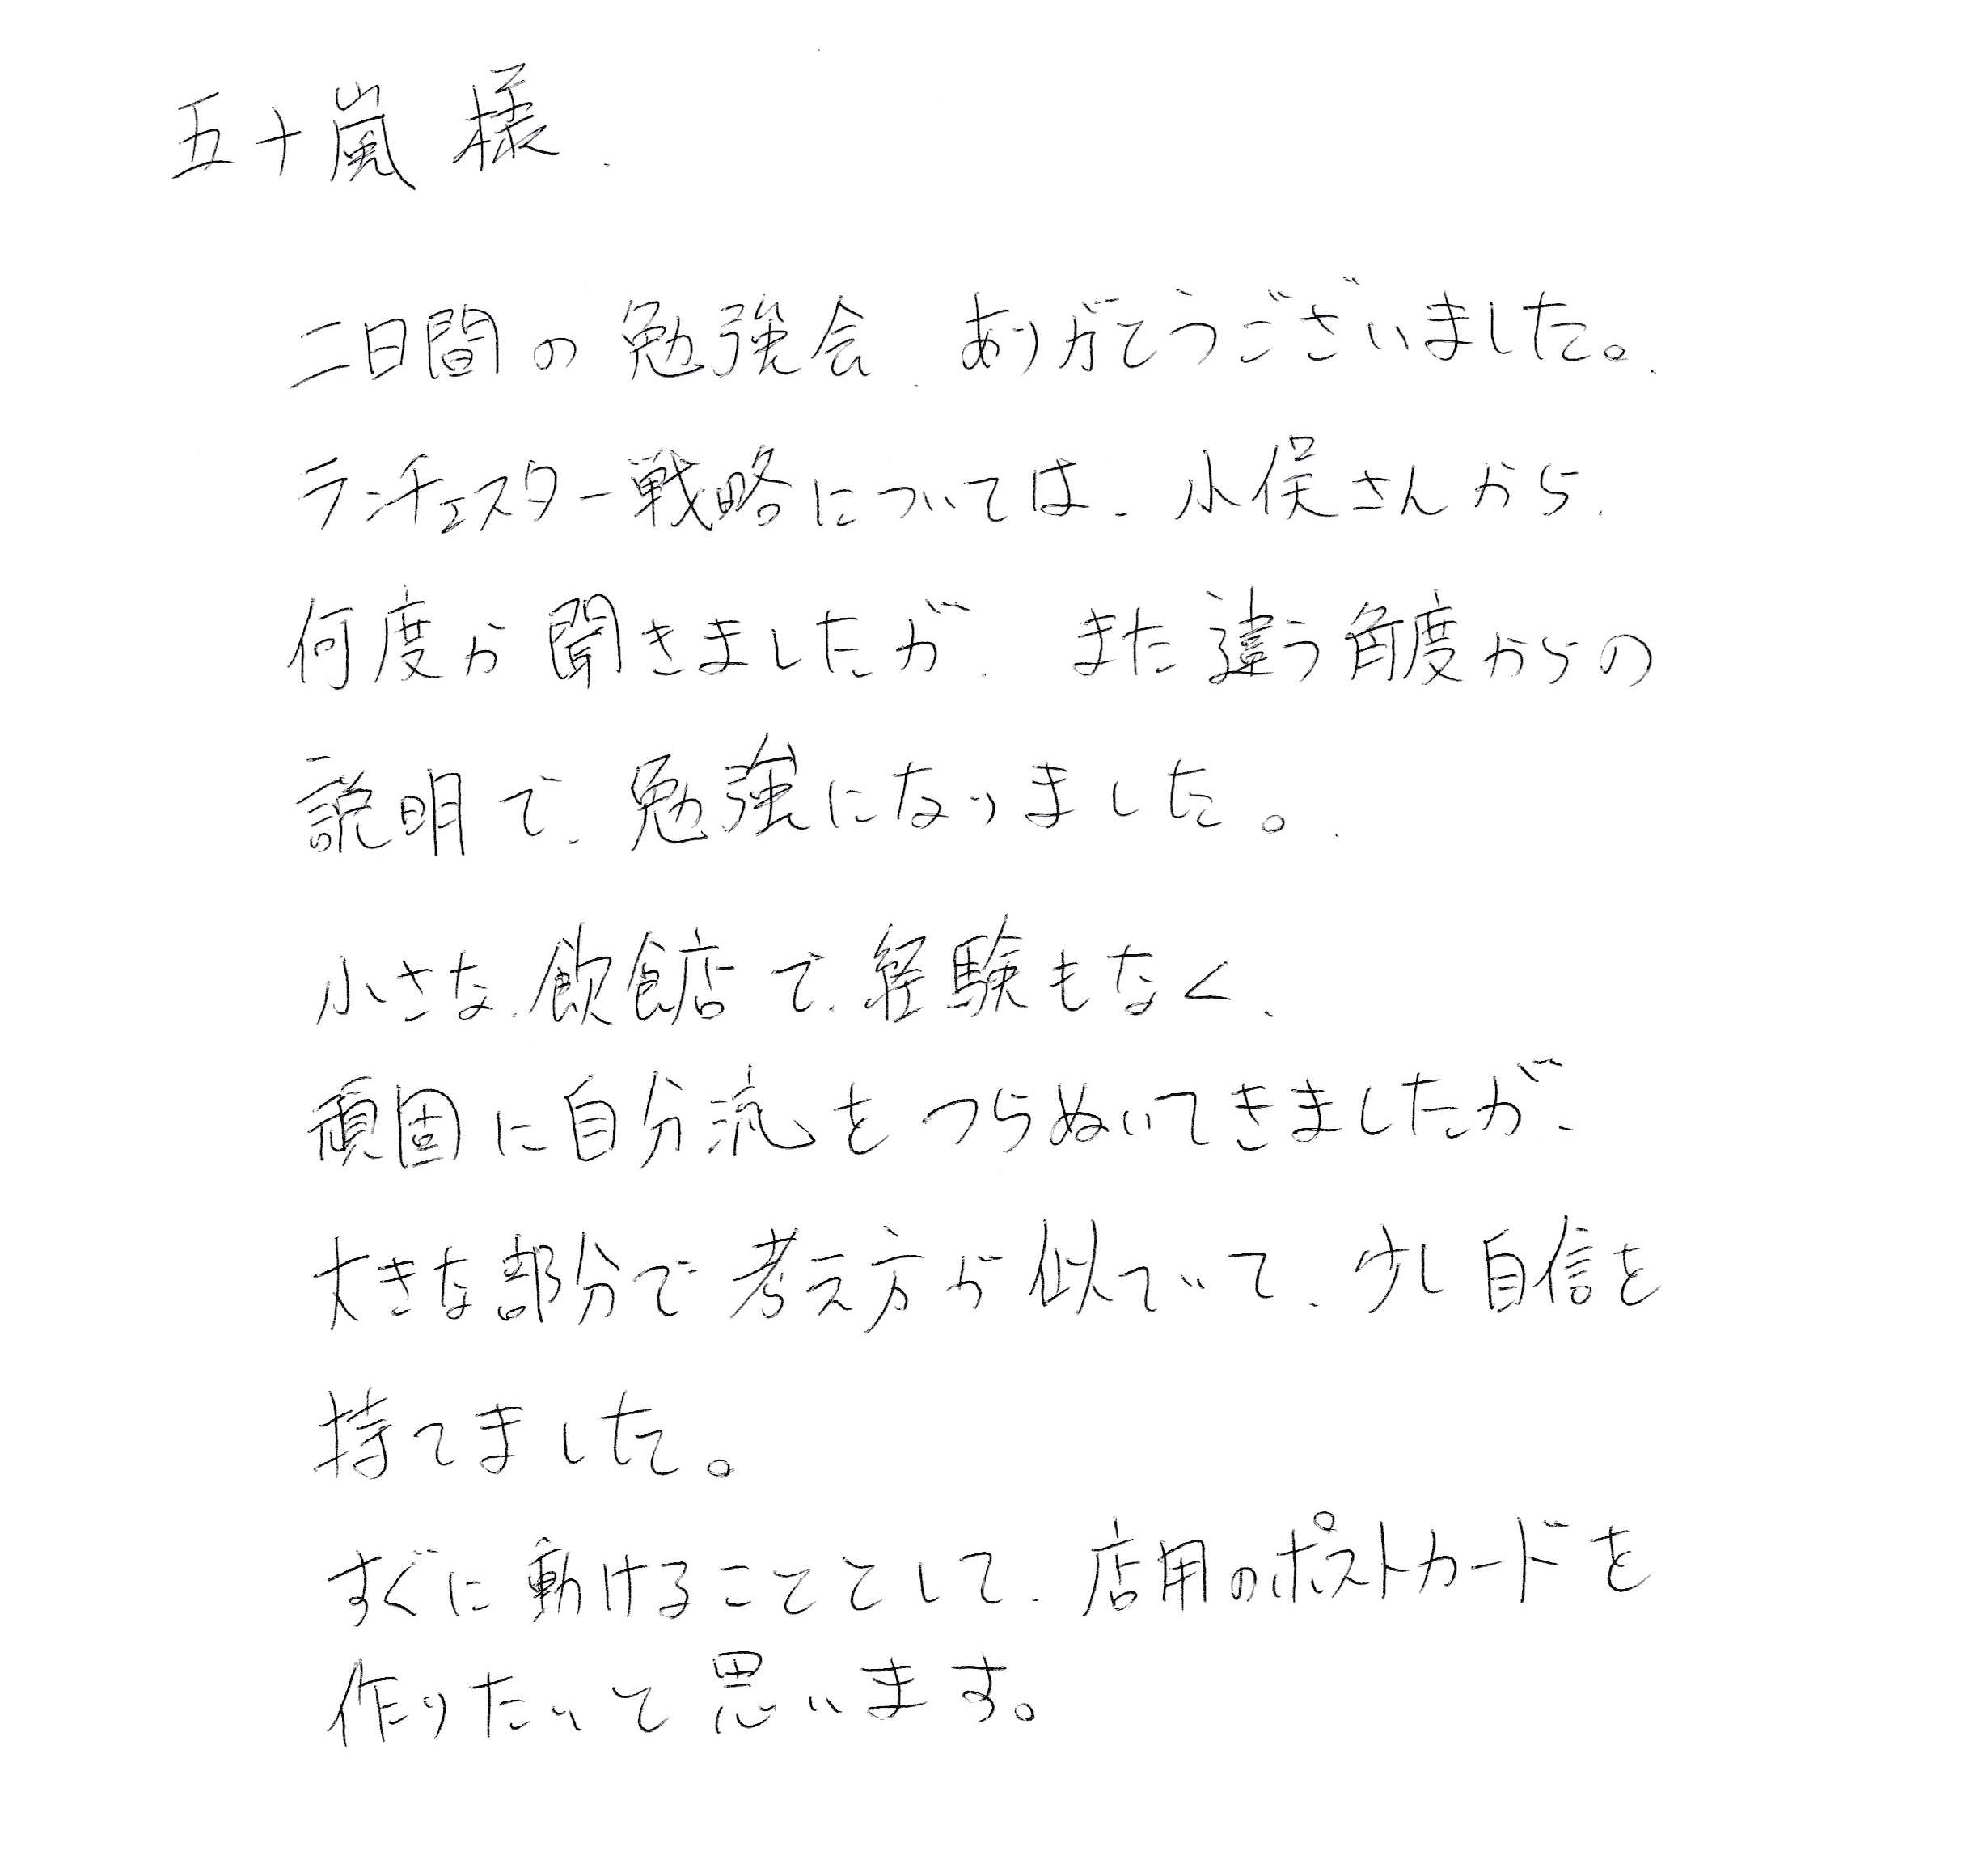 五十嵐 様
二日間の勉強会、ありがとうございました。
ランチェスター戦略については、小俣さんから、
何度か聞きましたが、また違う角度からの
説明で、勉強になりました。
小さな飲食店で、経験もなく、
頑固に自分流をつらぬいてきましたが、
大きな部分で考え方が似ていて、少し自信を
持てました。
すぐに動けることとして、店用のポストカードを
作りたいと思います。